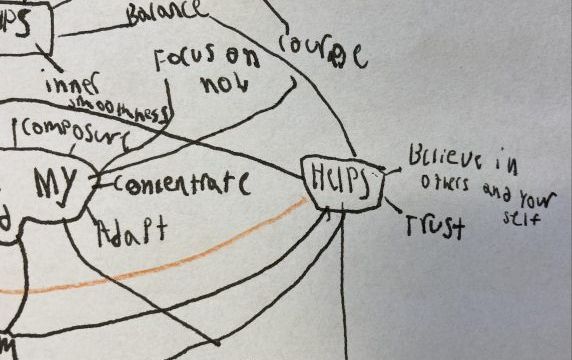 Balance
courage
Focus on
now
inner
smoothness
composure
MY
concentrate
Adapt
HELPS
Believe in
others and your
self
Trust